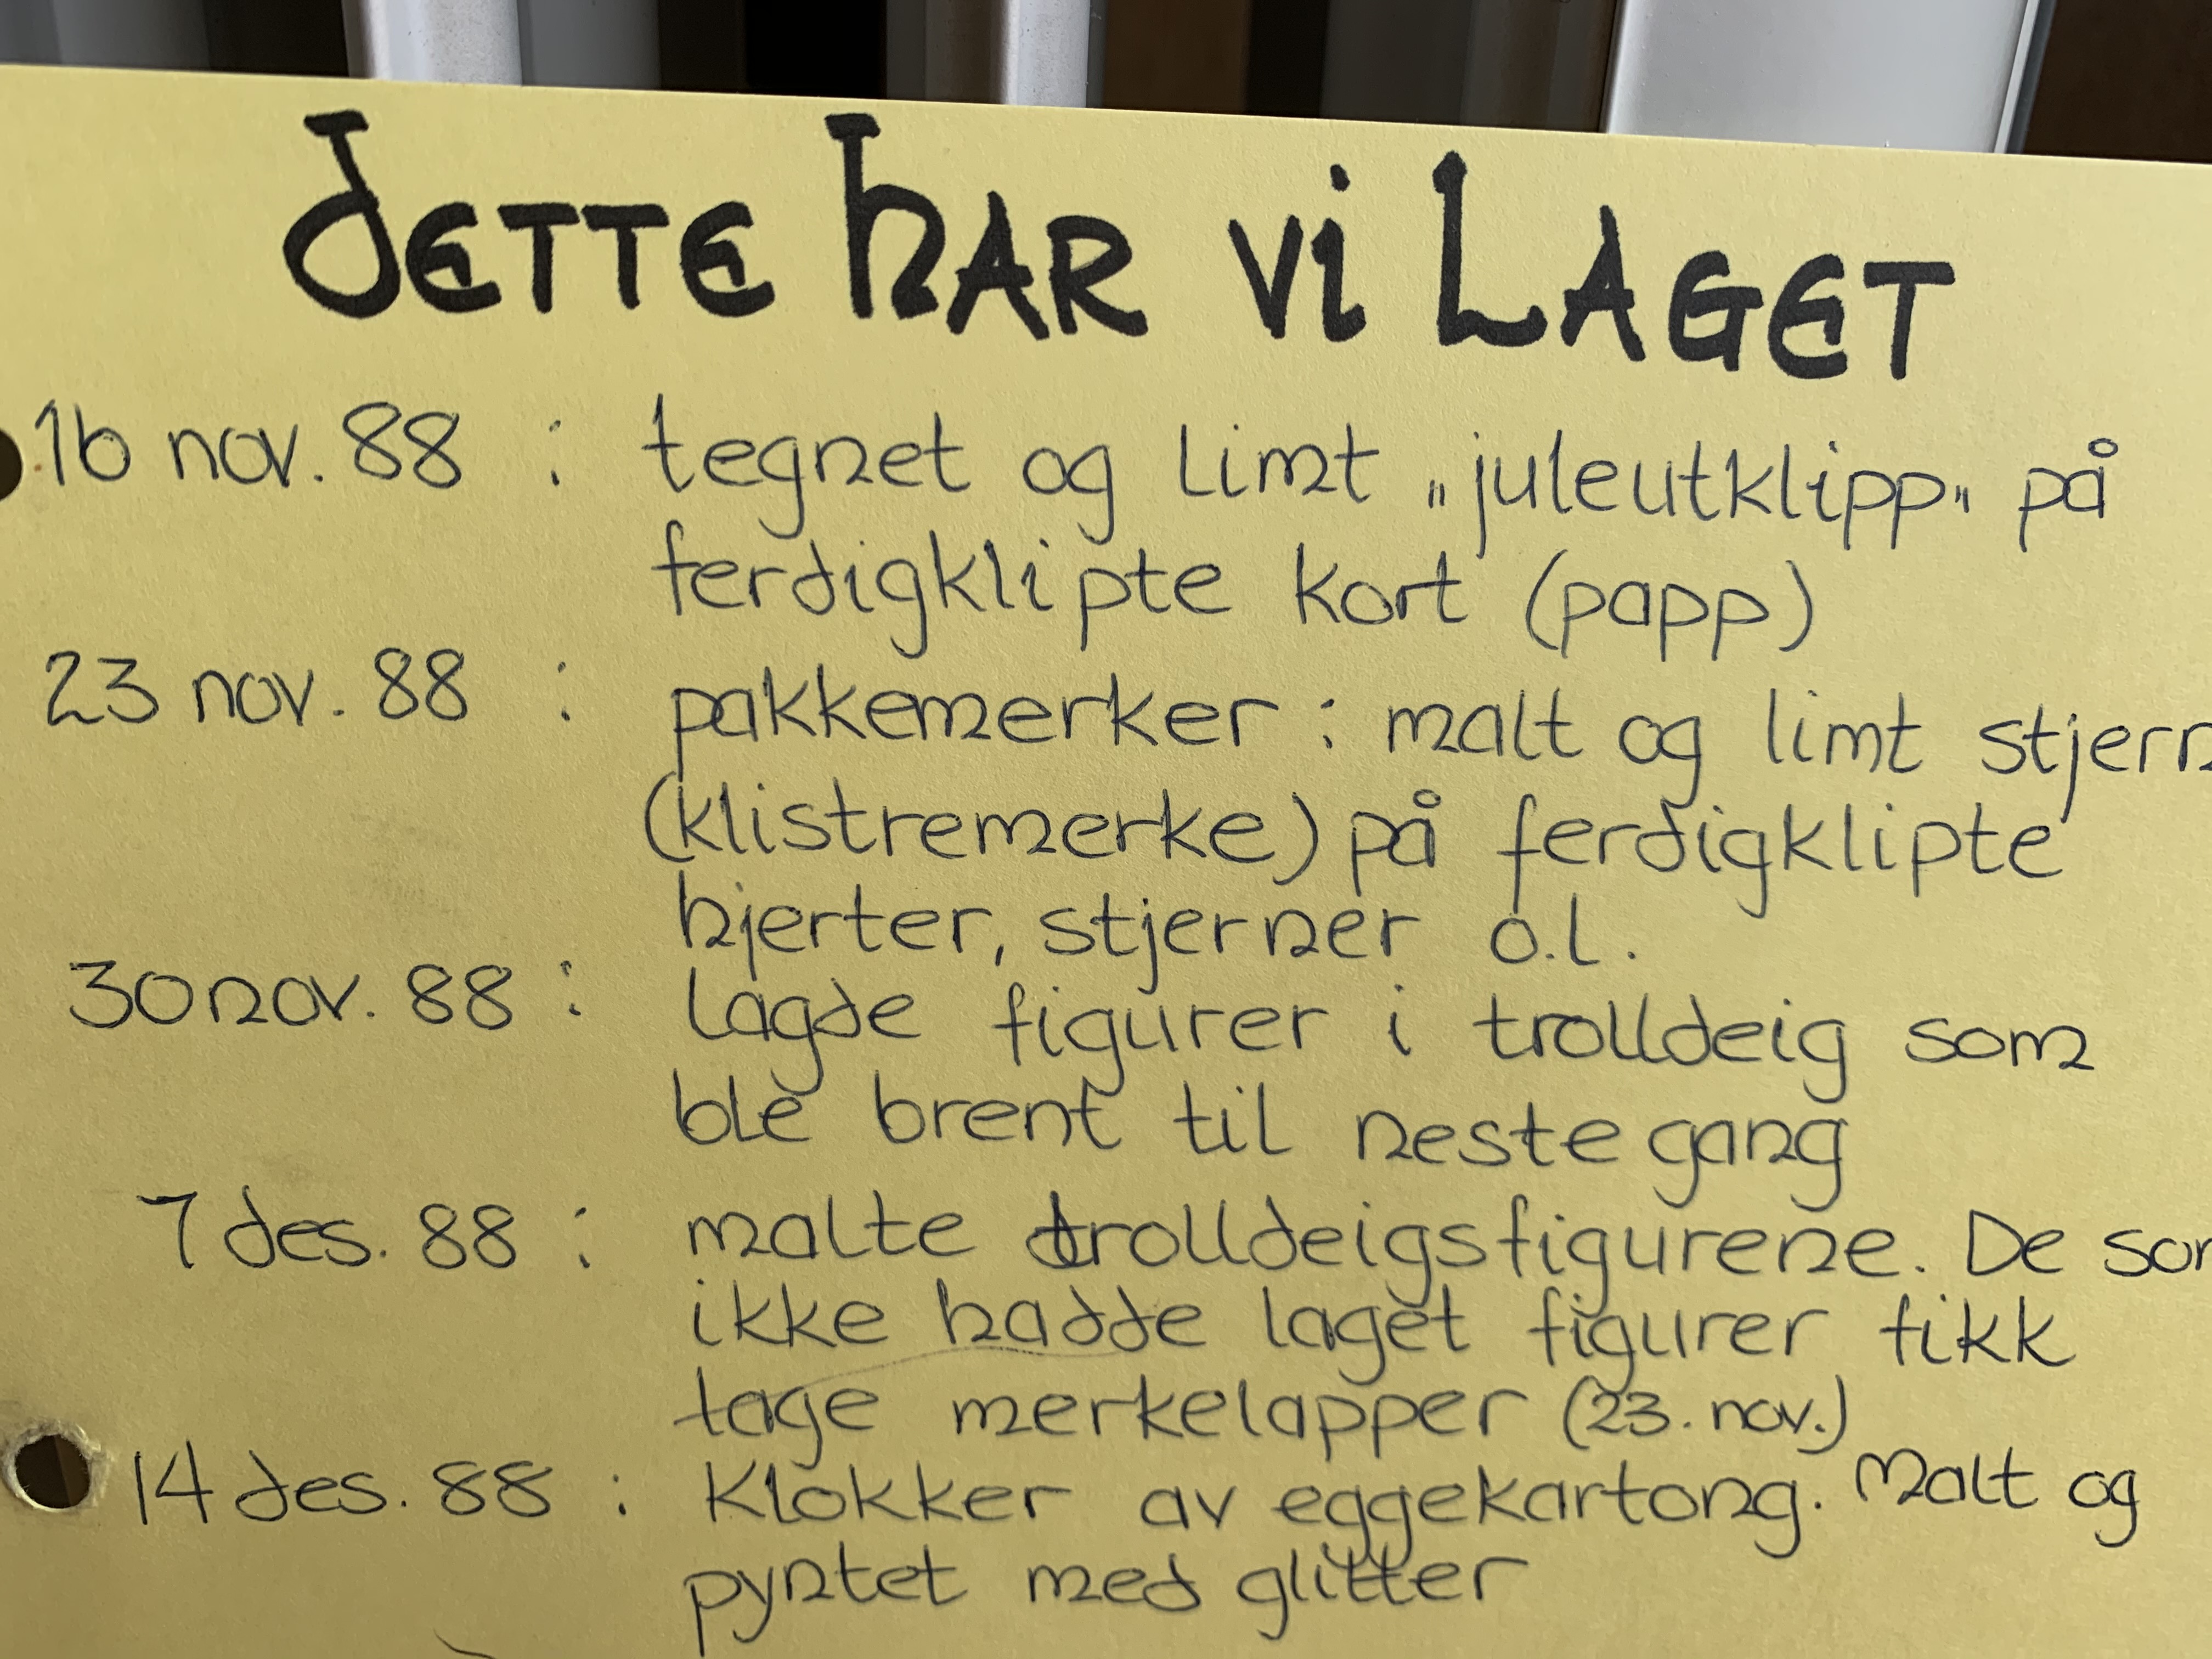 DETTE HAR Vi LAGET
16 nov. 88 : tegnet og limt „juleutklipp„ på
ferdigklipte kort (papp)
23 nov. 88 : pakkemerker : malt og limt stjern
(klistremerke) på ferdigklipte
hjerter, stjerner o.l.
30 nov. 88 : lagde figurer i trolldeig som
ble brent til neste gang
7 des. 88 : malte trolldeigsfigurene. De som
ikke hadde laget figurer fikk
lage merkelapper (23. nov.)
14 des. 88 : Klokker av eggekartong. Malt og
pyntet med glitter